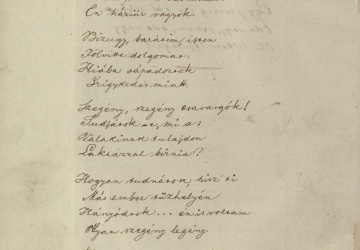 Én háziúr vagyok.
Bizugy, barátim, isten
Fölvive dolgomat,
Hiába sápadozik
Irigykedés miatt.
Szegény, szegény csavargók!
Tudjátok-e, mi a:
Valakinek tulajdon
Lakházzal birnia?
Hogyan tudnátok, hisz ti
Más ember tűzhelyén
Húnyódtok... én is voltam
Olyan szegény legény.